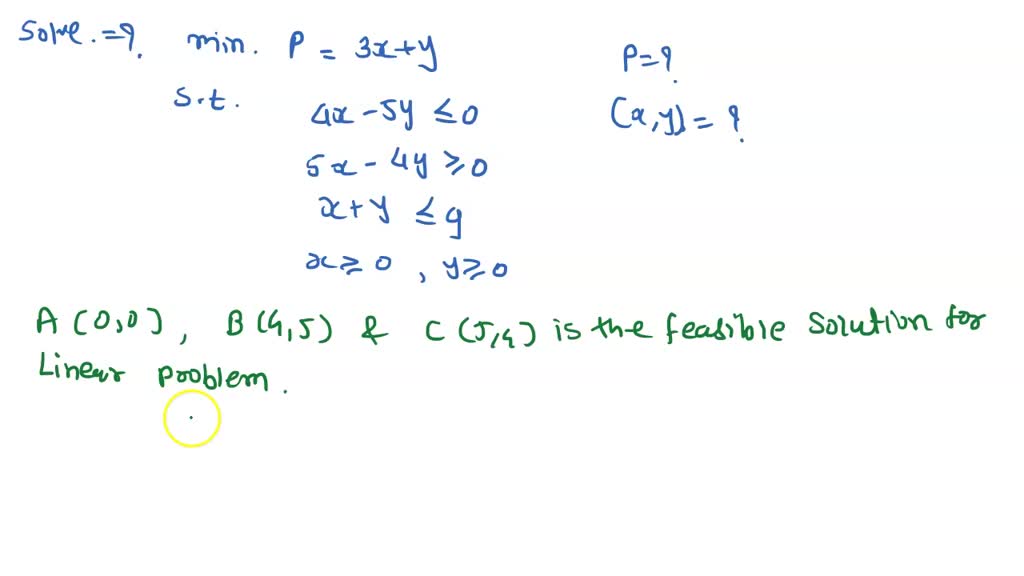 Solve.=? min. P = 3x+y P=?
S.t. 4x-5y ≤0 (x,y)= ?
5x-4y ≥0
x+y ≤9
x≥0 , y≥0
A(0,0), B(4,5) & C(5,4) is the feasible solution for
Linear problem.